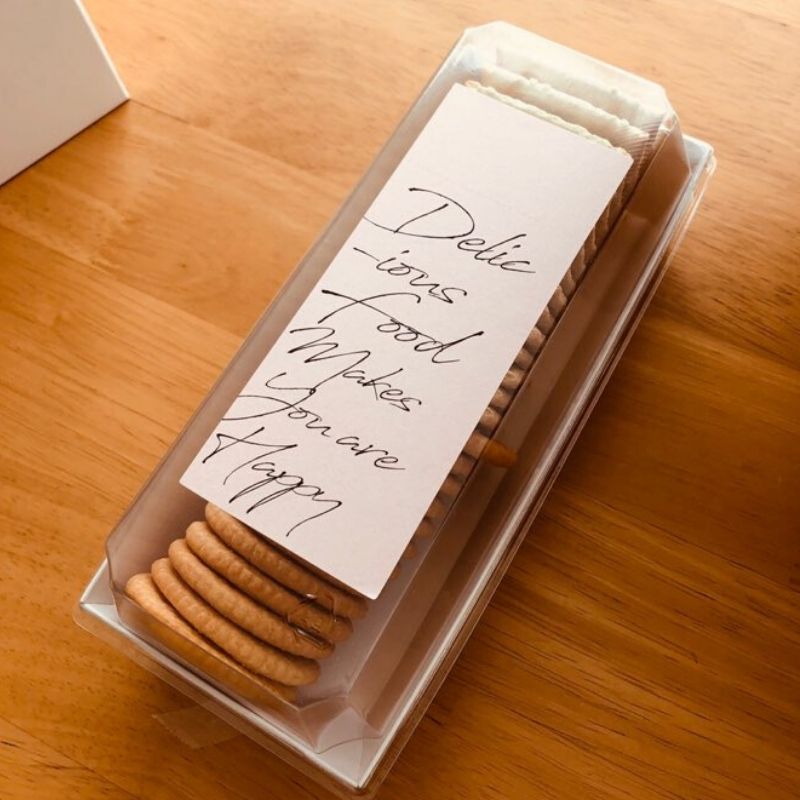 Delic
-ious
food
Makes
You are
Happy